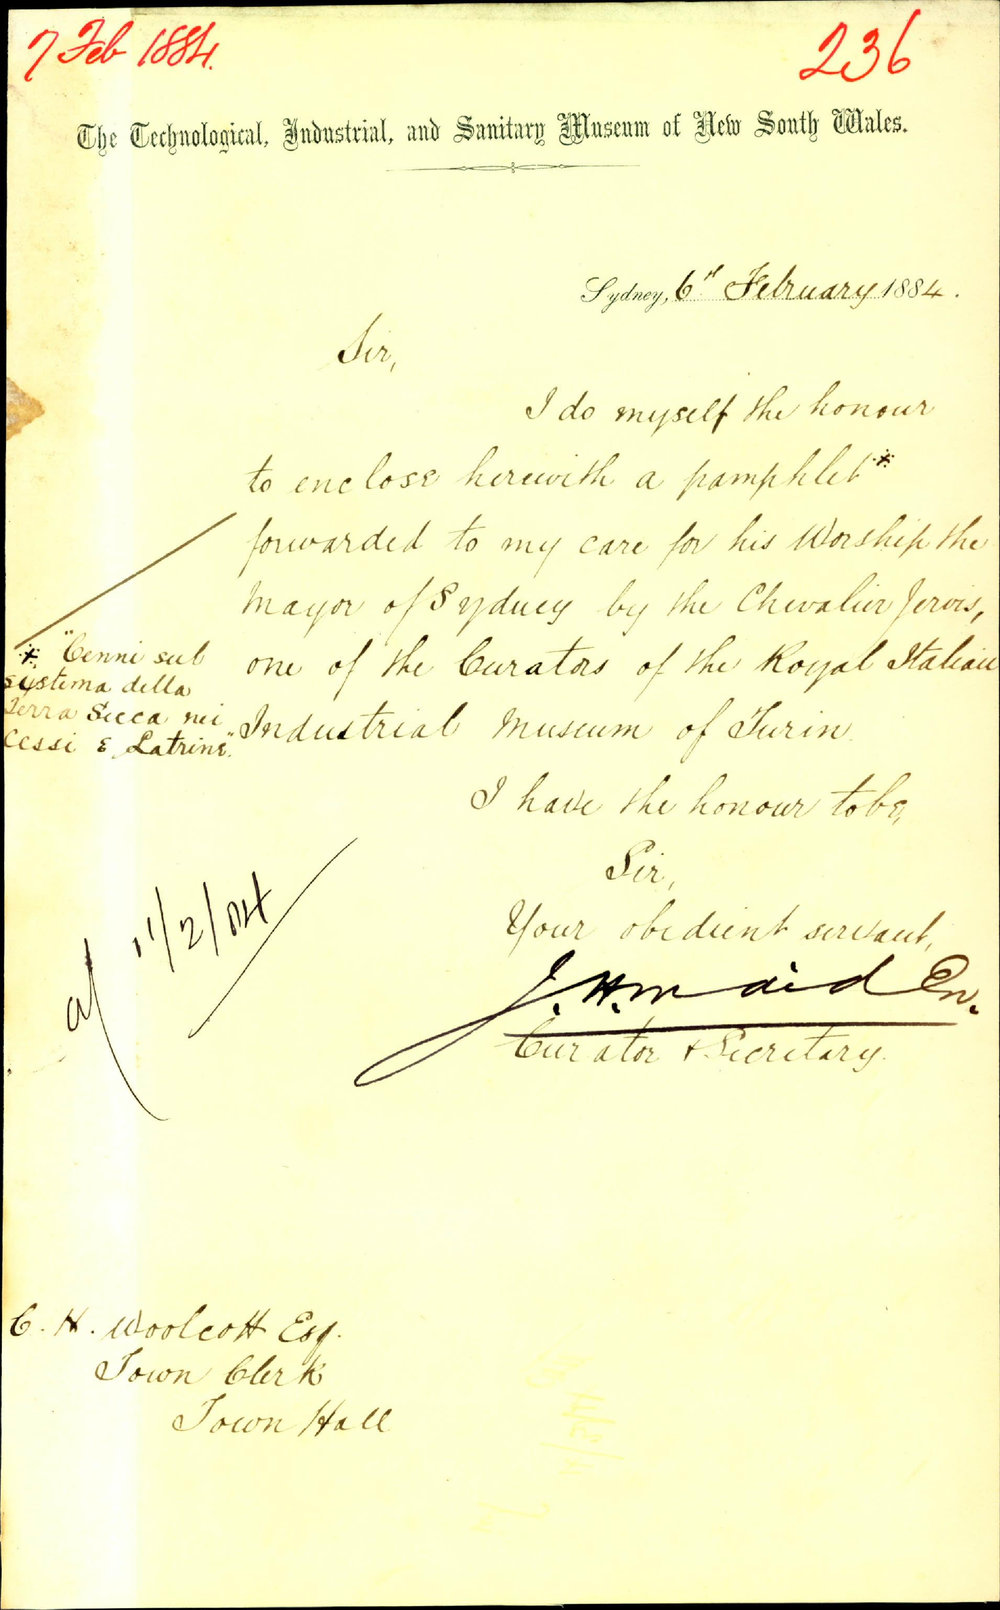 7 Feb 1884.
236
The Technological, Industrial, and Sanitary Museum of New South Wales.
Sydney, 6th February 1884.
Sir,
I do myself the honour
to enclose herewith a pamphlet *
forwarded to my care for his Worship the
Mayor of Sydney by the Chevalier Jervis,
one of the Curators of the Royal Italian
Industrial Museum of Turin.
* "Cenni sul
systema della
Terra Secca nei
Cessi e Latrine".
I have the honour to be,
Sir,
Your obedient servant,
J. H. Maiden.
Curator & Secretary.
11/2/84
C. H. Woolcott Esq.
Town Clerk
Town Hall